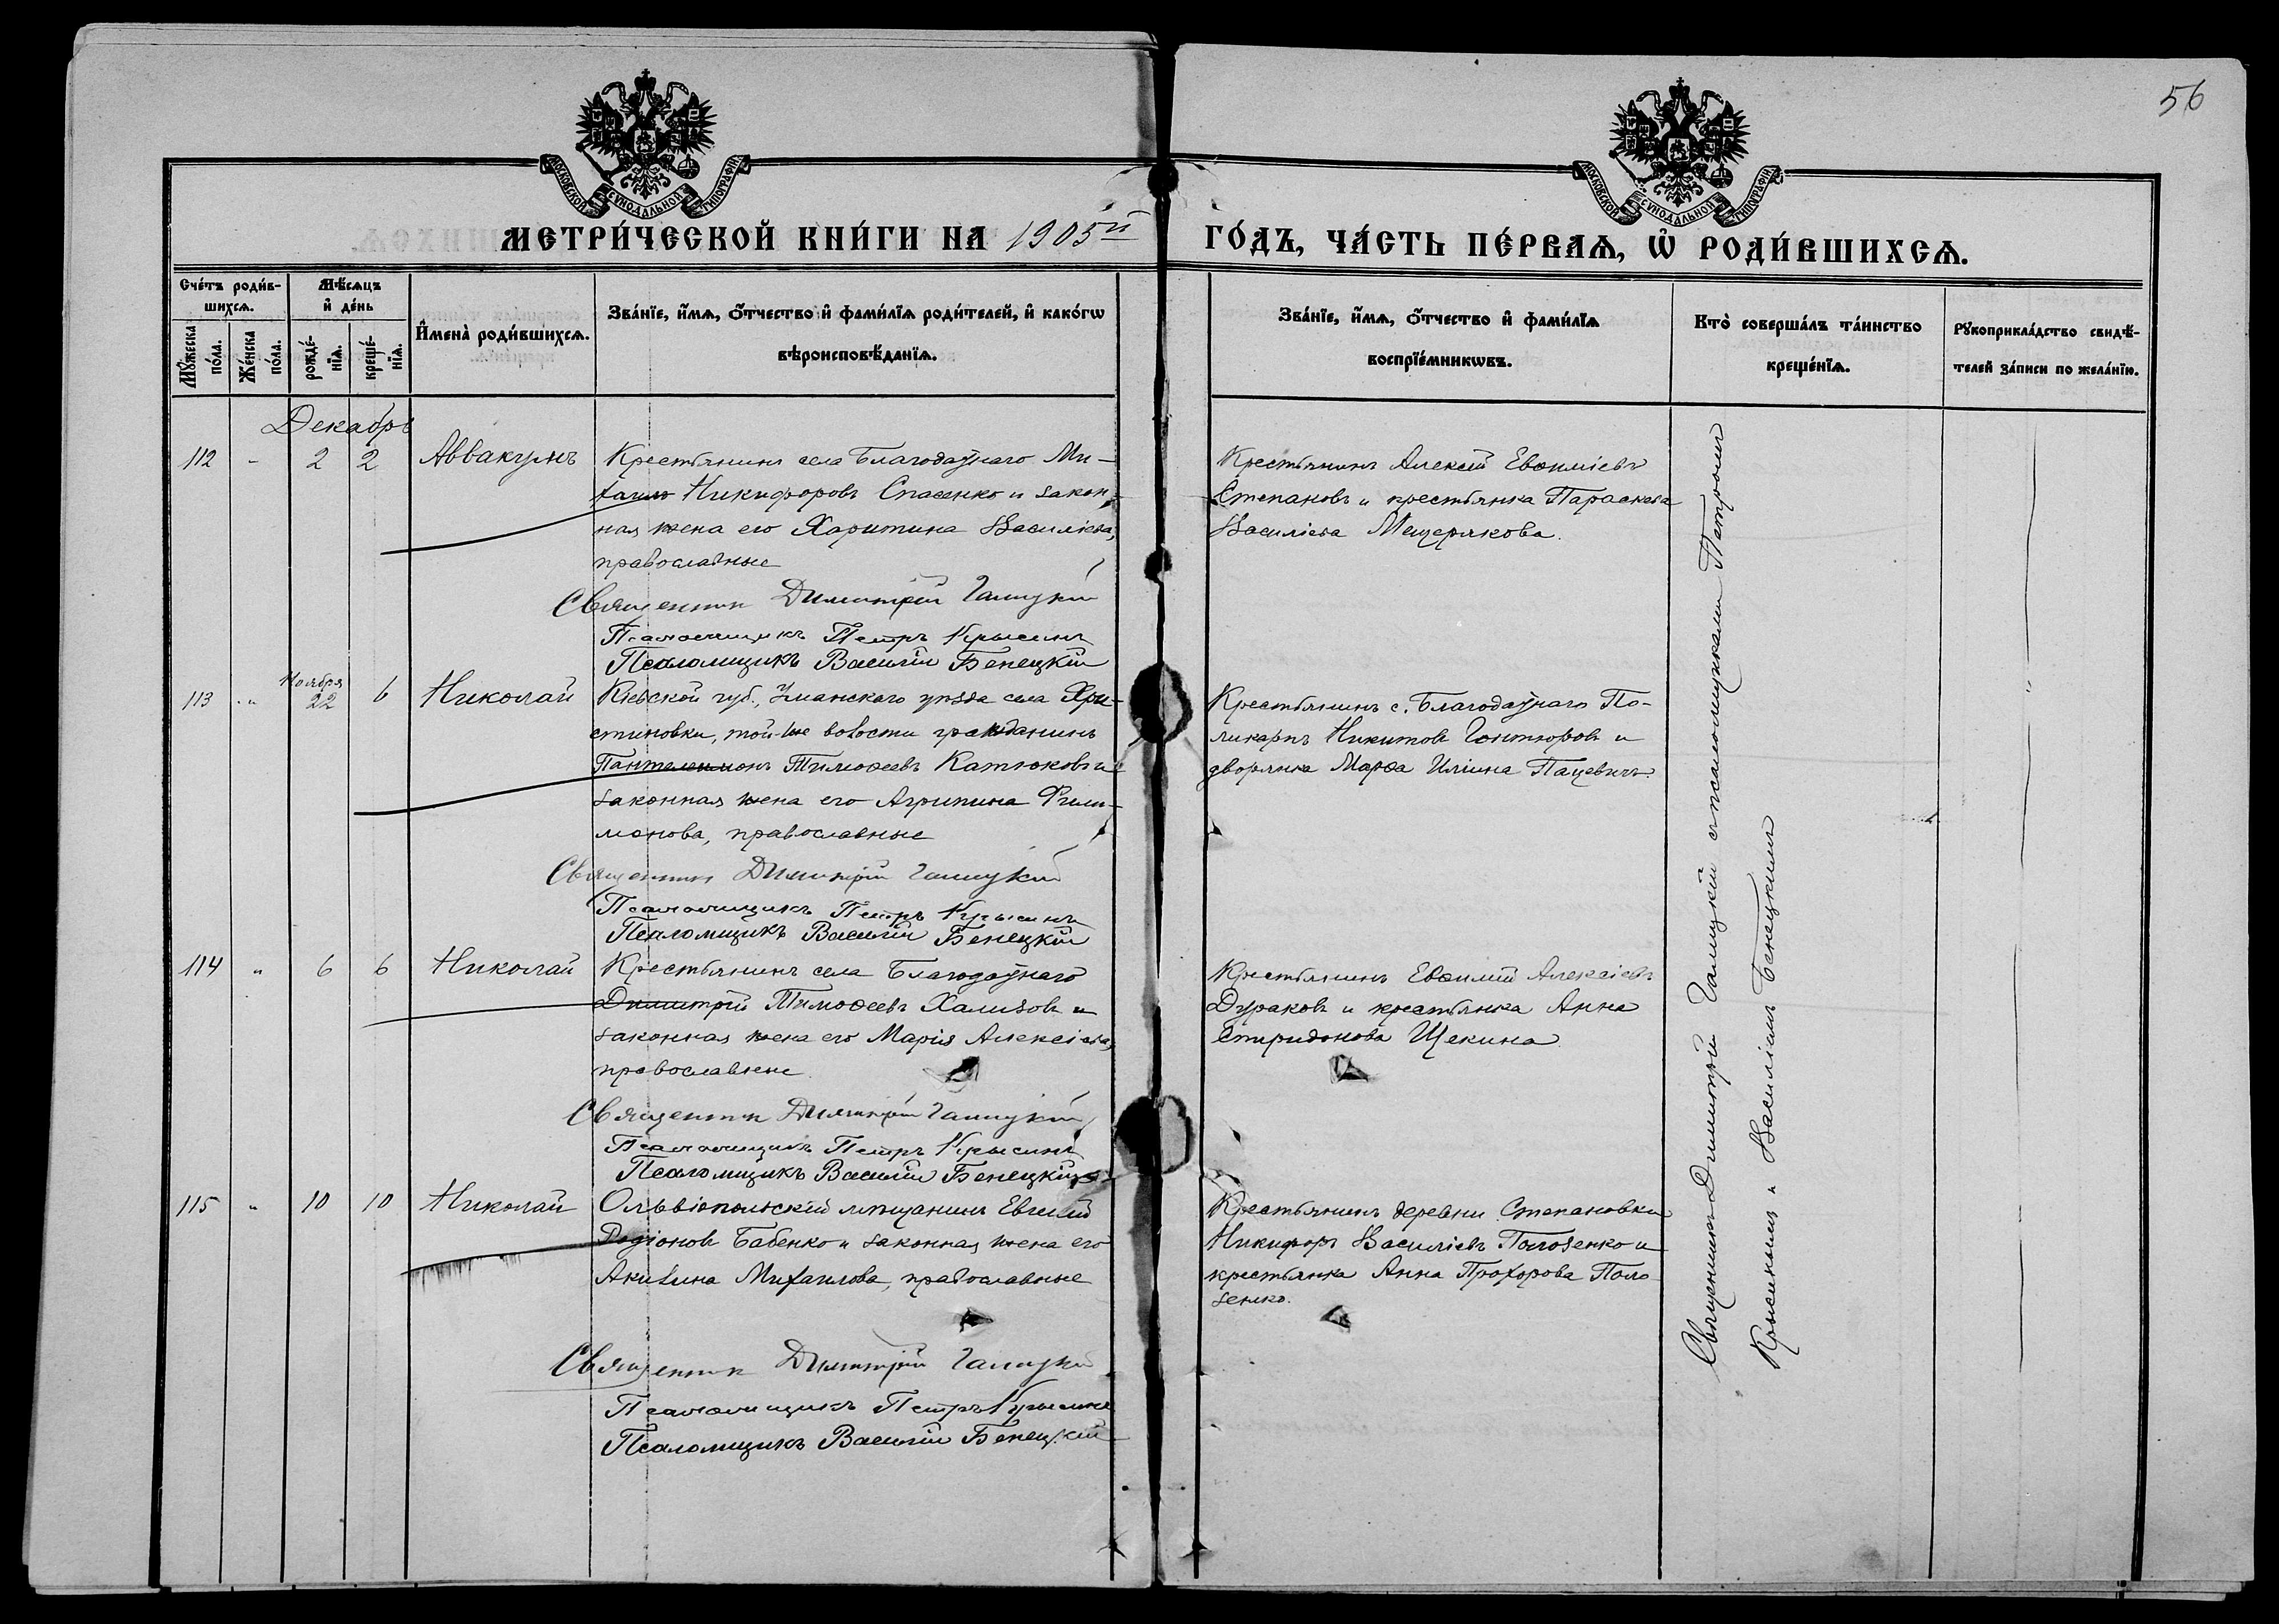 56
МОСКОВСКОЙ СѴНОДАЛЬНОЙ ТИПОГРАФІИ
МОСКОВСКОЙ СѴНОДАЛЬНОЙ ТИПОГРАФІИ
МЕТРИ́ЧЕСКОЙ КНИ́ГИ НА 1905й ГО́ДЪ, ЧА́СТЬ ПЕ́РВАѦ, Ѡ҆ РОДИ́ВШИХСѦ.
Сче́тъ роди́в-
шихсѧ.
Мꙋ́жеска
по́ла.
Же́нска
по́ла.
Мѣ́сяцъ
и҆ де́нь
рожде́-
нїѧ.
креще́-
нїѧ.
И҆мена̀ роди́вшихсѧ.
Зва́нїе, и҆́мѧ, ѻ҆́тчество и҆ фами́лїѧ роди́телей, и҆ како́гѡ
вѣроисповѣ́данїѧ.
Зва́нїе, и҆́мѧ, ѻ҆́тчество и҆ фами́лїѧ
воспрїе́мникѡвъ.
Кто̀ соверша́лъ та́инство
креще́нїѧ.
Рꙋкоприкла́дство свидѣ́-
телей за́писи по жела́нїю.
Декабрь
112 - 2 2 Аввакумъ
Крестьянинъ села Благодатнаго Ми-
хаилъ Никифоровъ Спасенко и закон-
ная жена его Харитина Василіева,
православные
Священник Димитрій Галицкій
Псаломщикъ Петръ Крысинъ
Псаломщикъ Василій Бенецкій
Крестьянинъ Алексій Евѳиміевъ
Степановъ и крестьянка Параскева
Василіева Мещерякова.
113 " Ноября 22 6 Николай
Кіевской губ., Уманскаго уѣзда села Хри-
стиновки, той-же волости гражданинъ
Пантелеимонъ Тимоѳеевъ Катюковъ и
законная жена его Агрипина Фили-
монова, православные
Священник Димитрій Галицкій
Псаломщикъ Петръ Крысинъ
Псаломщикъ Василій Бенецкій
Крестьянинъ с. Благодатнаго По-
ликарпъ Никитовъ Гонтюровъ и
дворянка Марѳа Иліина Пацевичъ.
114 " 6 6 Николай
Крестьянинъ села Благодатнаго
Димитрій Тимоѳеевъ Хализовъ и
законная жена его Марія Алексіева,
православные.
Священник Димитрій Галицкій
Псаломщикъ Петръ Крысинъ
Псаломщикъ Василій Бенецкій
Крестьянинъ Евѳимій Алексіевъ
Дураковъ и крестьянка Анна
Спиридонова Щекина
115 " 10 10 Николай
Ольвіопольскій мѣщанинъ Евгеній
Родіоновъ Бабенко и законная жена его
Акилина Михаилова, православные
Священник Димитрій Галицкій
Псаломщикъ Петръ Крысинъ
Псаломщикъ Василій Бенецкій
Крестьянинъ деревни Степановки
Никифоръ Василіевъ Полозенко и
крестьянка Анна Прохорова Поло-
зенко.
Священникъ Димитрій Галицкій с псаломщиками Петромъ
Крысинымъ и Василіемъ Бенецкимъ